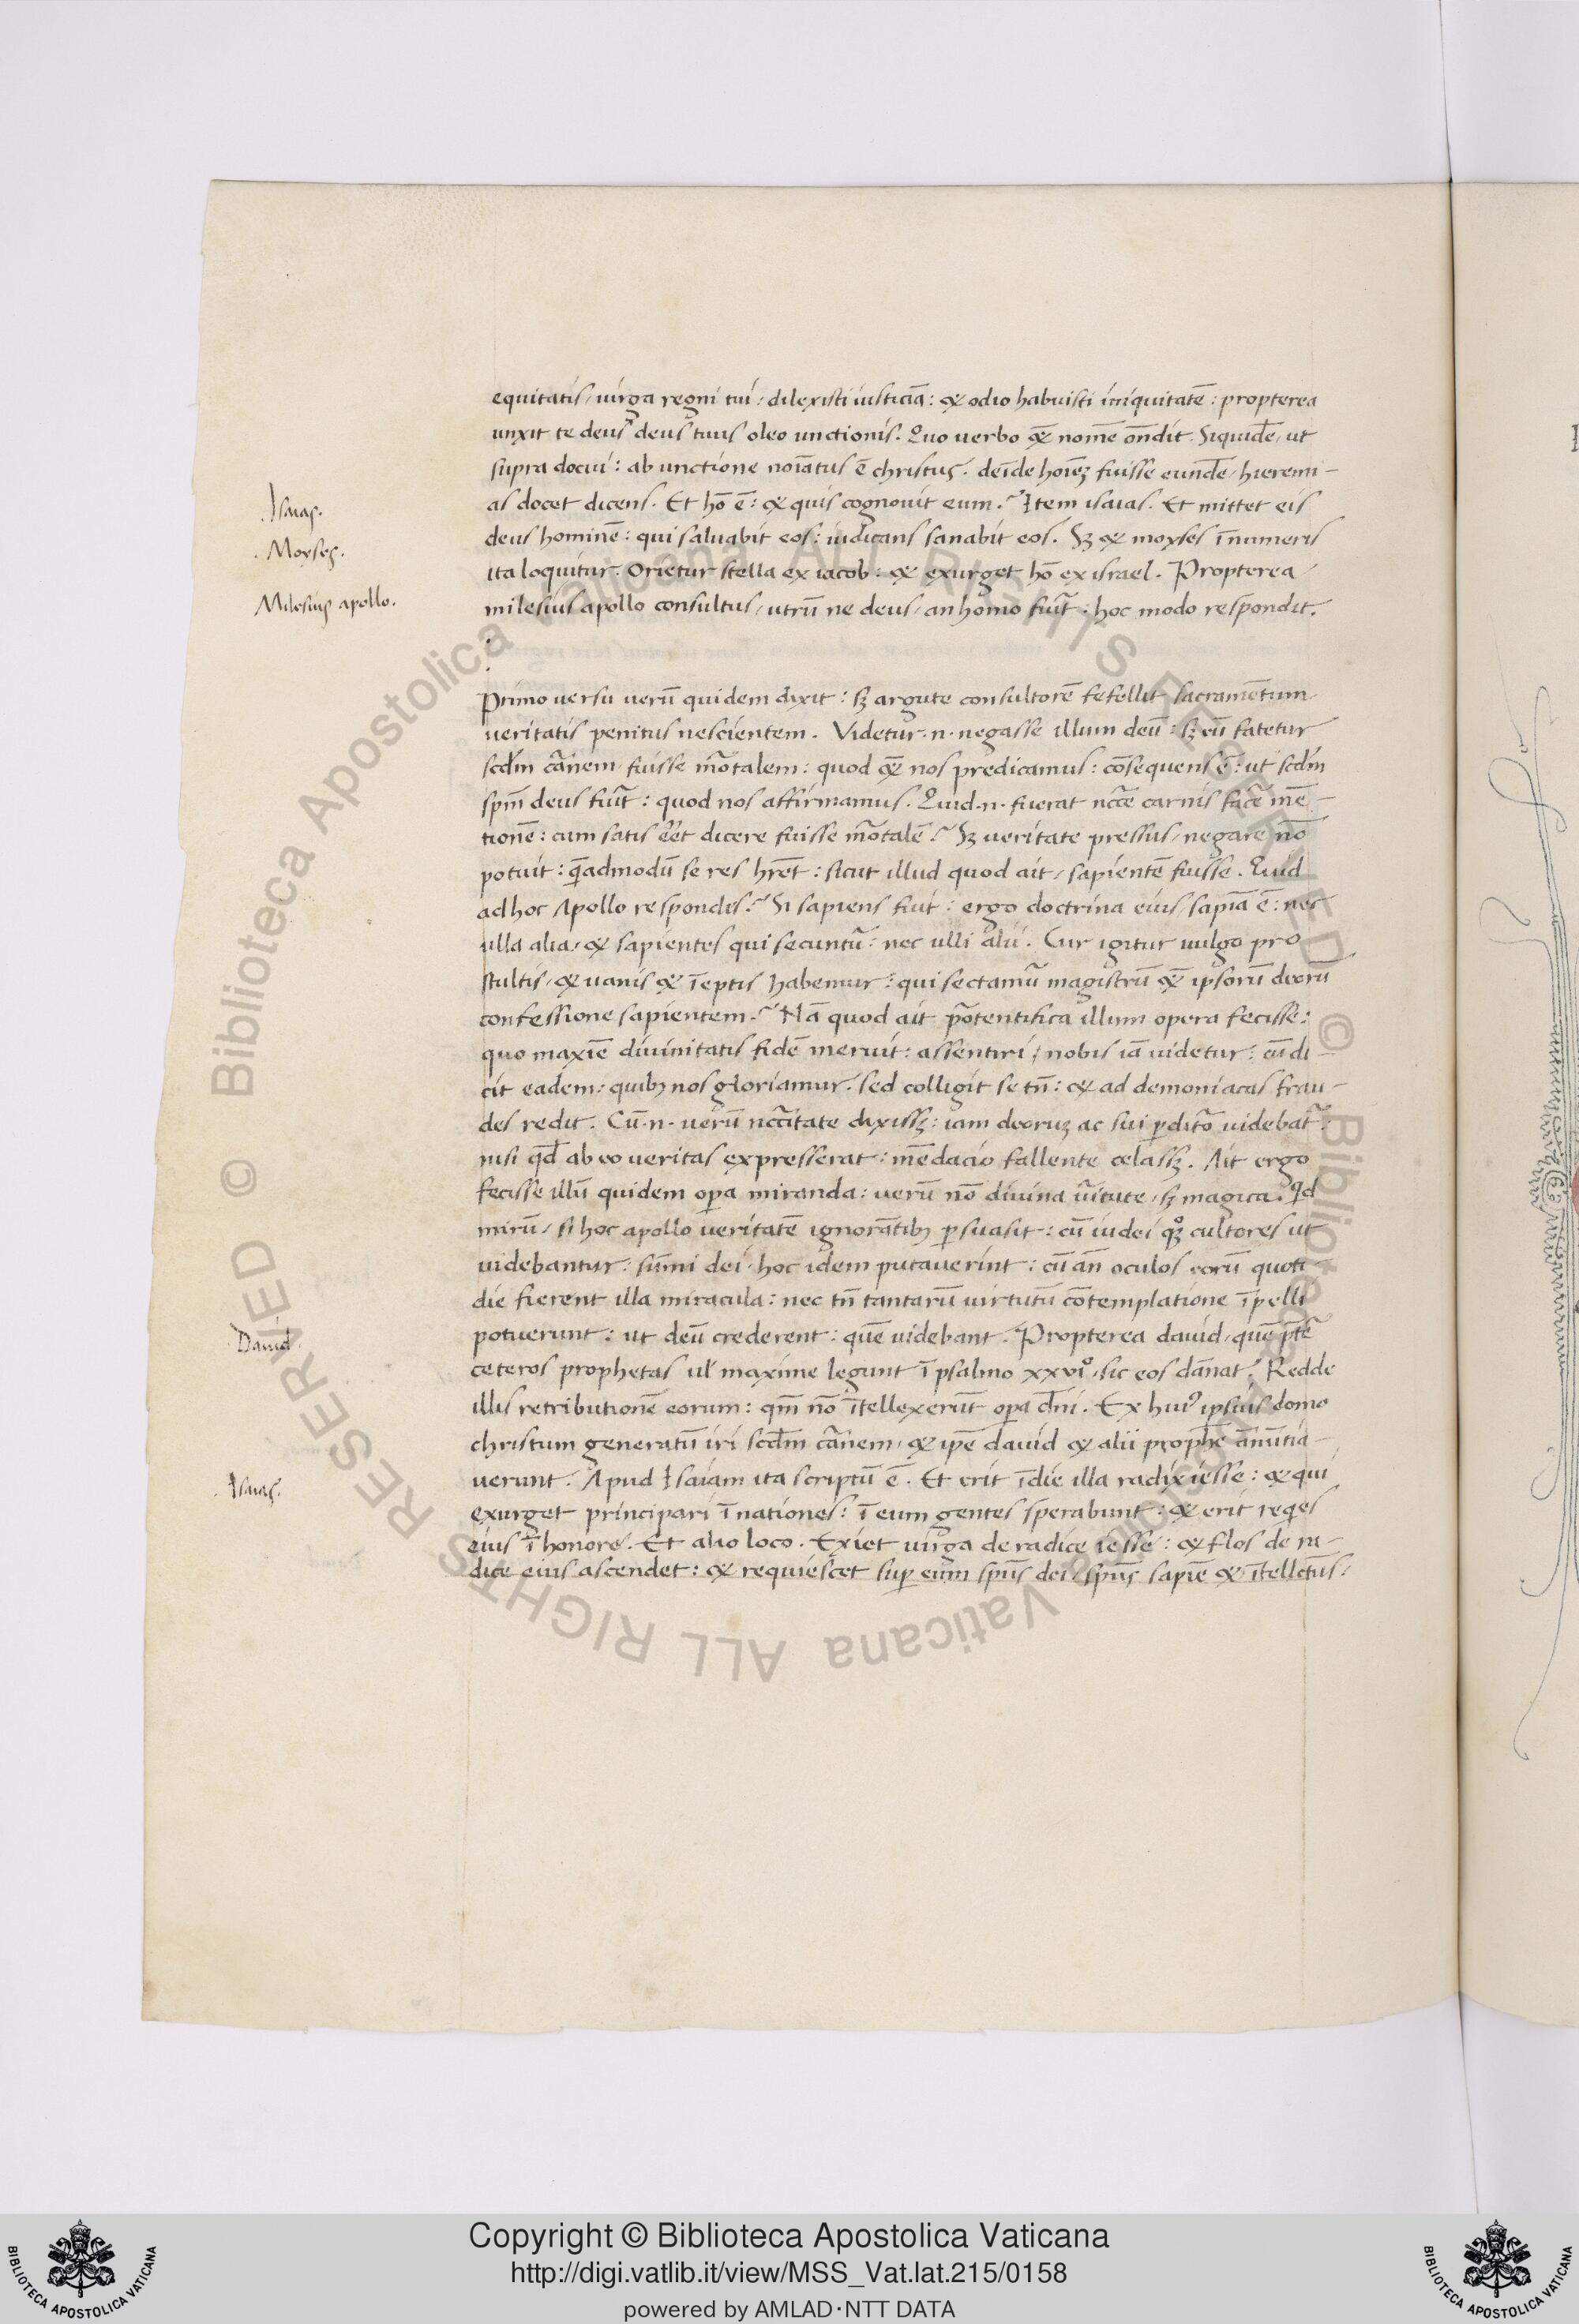 equitatis, uirga regni tui: dilexisti iusticiā: & odio habuisti iniquitatē: propterea
unxit te deus deus tuus oleo unctionis. Quo uerbo & nomē ōndit. Siquidē, ut
supra docui: ab unctione noīatus ē christus. deīde hoīez fuisse eundē, hieremi-
as docet dicens. Et hō ē: & quis cognouit eum? Item isaias. Et mittet eis
deus hominē: qui saluabit eos: iudicans sanabit eos. Sz & moyses ī numeris
ita loquitur. Orietur stella ex iacob: & exurget hō ex israel. Propterea
milesius apollo consultus, utrū ne deus, an homo fuit̄: hoc modo respondit.
Primo uersu uerū quidem dixit: sz argute consultorē fefellit sacramētum
ueritatis penitus nescientem. Videtur .n. negasse illum deū: sz cū fatetur
scdm cānem fuisse m̄otalem: quod & nos predicamus: cōsequens ē: ut scdm
spm̄ deus fuit̄: quod nos affirmamus. Quid .n. fuerat ncc̄e carnis face mē-
tionē: cum satis eēt dicere fuisse m̄otalē? Sz ueritate pressus, negare nō
potuit: qēadmodū se res hrēt: sicut illud quod ait, sapientē fuisse. Quid
ad hoc Apollo respondes? Si sapiens fuit: ergo doctrina eius, sapīa ē: nec
ulla alia, & sapientes qui secuntū: nec ulli alii. Cur igitur uulgo pro
stultis, & uanis & īeptis habemur: qui sectamū magistrū & ipsorū deorū
confessione sapientem? Nā quod ait p̄otentifica illum opera fecisse:
quo maxīe diuinitatis fidē meruit: assentiri, nobis iā uidetur: cū di-
cit eadem: quibz nos gloriamur. sed colligit se tn̄: & ad demoniacas frau-
des redit. Cū .n. uerū nccītate dixissz: iam deoruz ac sui p̱ditō uidebat̄:
nisi qd̄ ab eo ueritas expresserat: mēdacio fallente celassz. Ait ergo
fecisse illū quidem oꝑa miranda: uerū nō diuina ūitute, sz magica. Qd
mirū, si hoc apollo ueritatē ignorātibz ꝑsuasit: cū iudei qꝫ cultores ut
uidebantur, sūmi dei, hoc idem putauerint: cū an̄ oculos eorū quoti
die fierent illa miracula: nec tn̄ tantarū uirtutū cōtemplatione īpelli
potuerunt: ut deū crederent: quē uidebant. Propterea dauid, quē p̄tē
ceteros prophetas ul' maxime legunt ī psalmo xxvi°, sic eos dānat. Redde
illis retributionē eorum: qm̄ nō ītellexerūt oꝑa dn̄i. Ex hui' ipsius domo
christum generatū iri scdm cānem, & ipē dauid & alii prophē ānūtia-
uerunt. Apud Isaiam ita scriptū ē. Et erit ī die illa radix iesse: & qui
exurget principari ī nationes: ī eum gentes sperabunt: & erit reqes
eius ī honore. Et alio loco. Exiet uirga de radice iesse: & flos de ra-
dice eius ascendet: & requiescet suꝑ eum spūs dei, spūs sapīe & ītellctūs:
Isaias.
Moyses.
Milesius apollo.
Dauid
Isaias.
Copyright © Biblioteca Apostolica Vaticana
http://digi.vatlib.it/view/MSS_Vat.lat.215/0158
powered by AMLAD·NTT DATA
BIBLIOTECA APOSTOLICA VATICANA
BIBLIOTECA APOSTOLICA VATICANA
© Biblioteca Apostolica Vaticana ALL RIGHTS RESERVED © Biblioteca Apostolica Vaticana ALL RIGHTS RESERVED